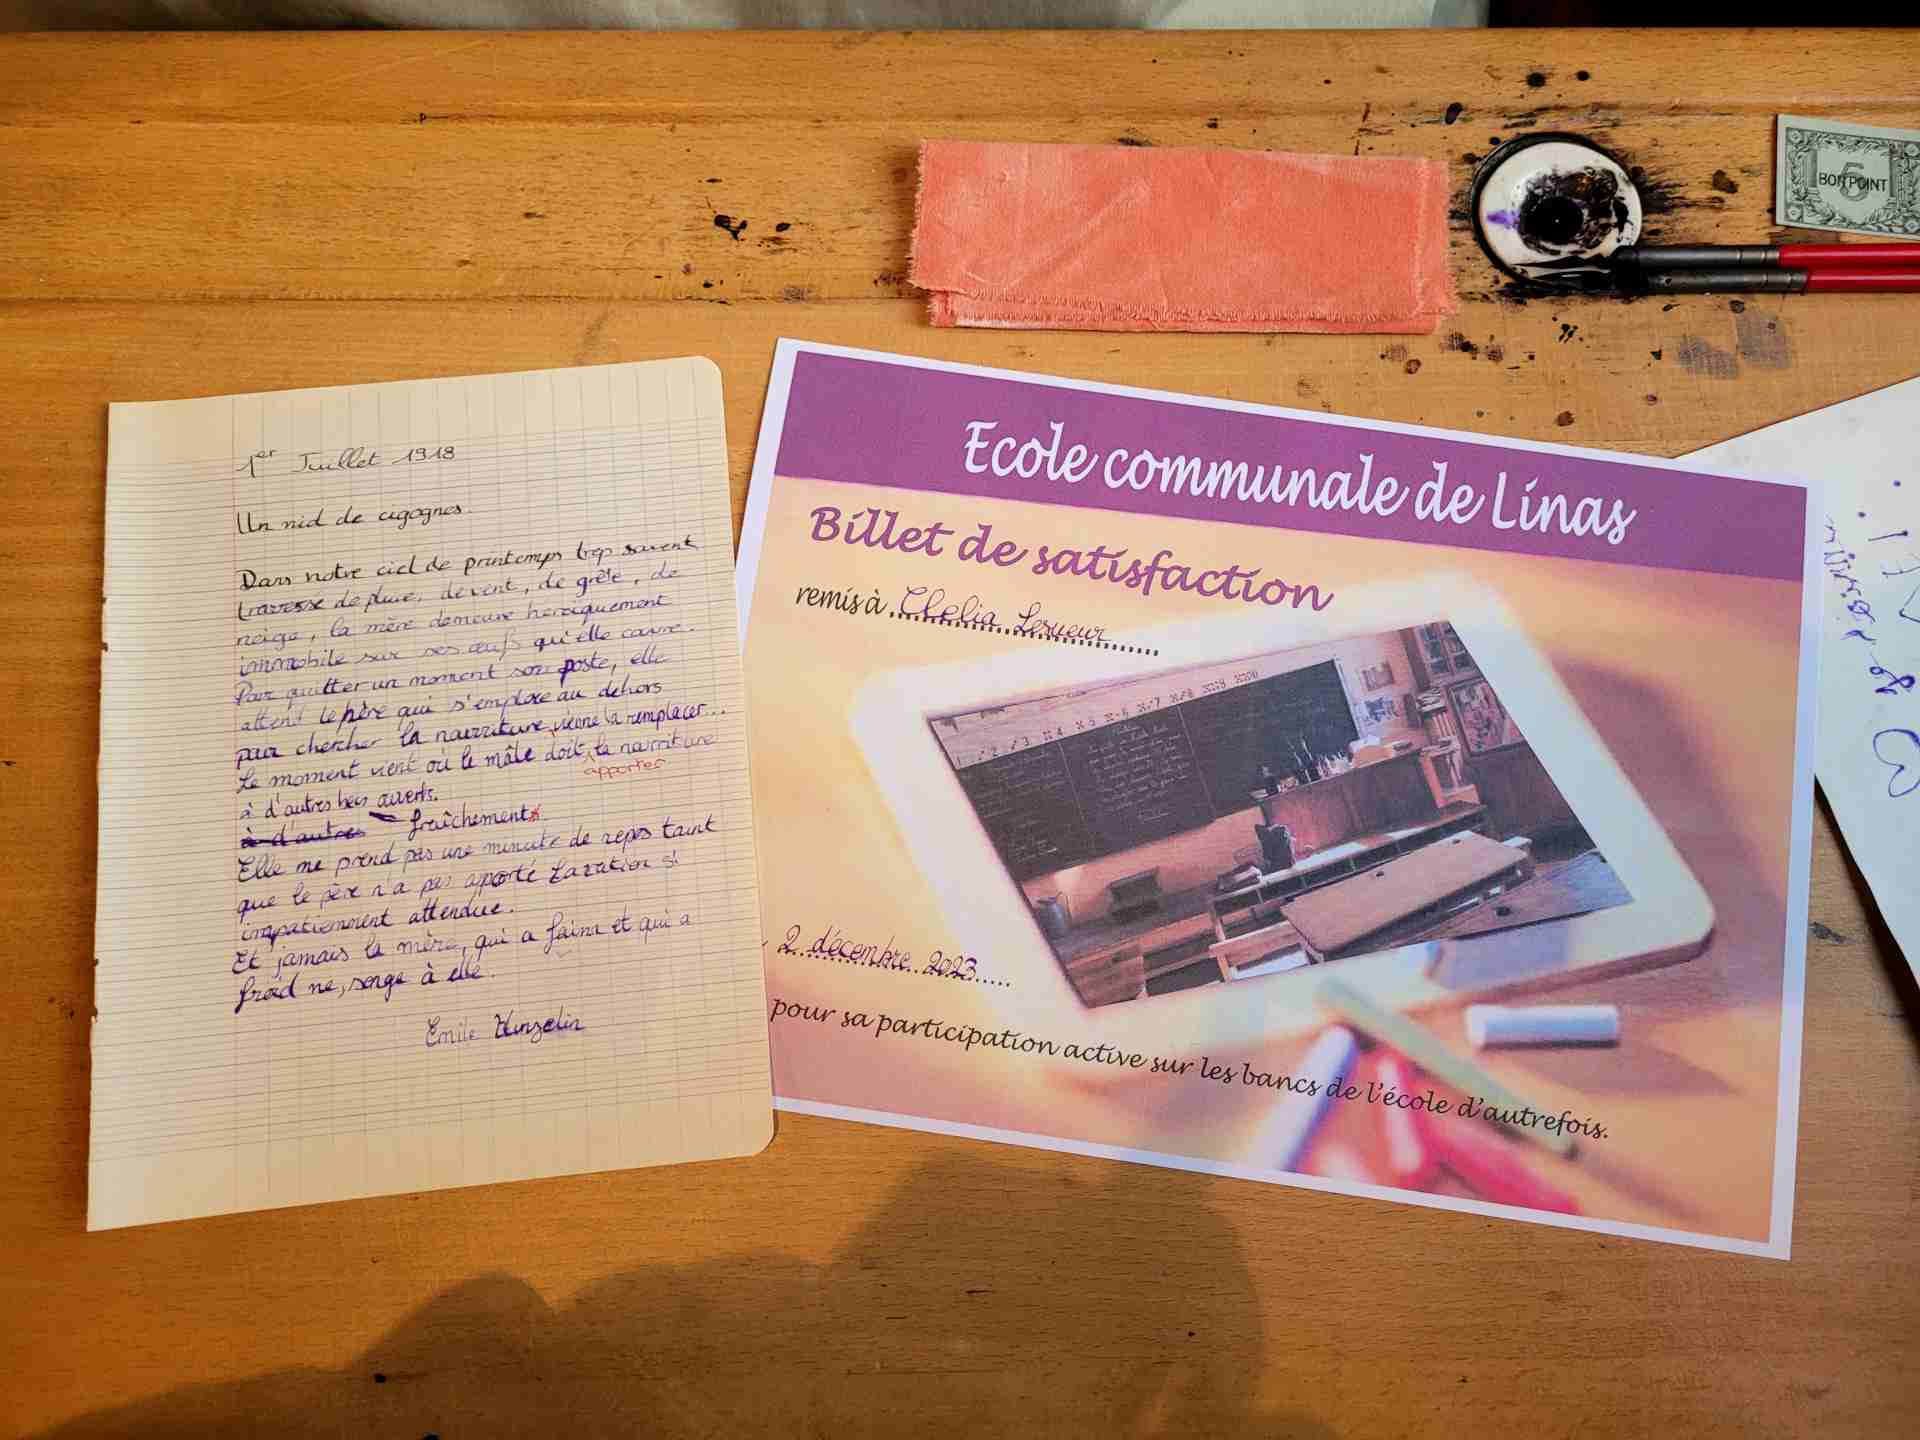 1er Juillet 1918
Un nid de cigognes.
Dans notre ciel de printemps trop souvent
traversé de pluie, de vent, de grêle, de
neige, la mère demeure héroïquement
immobile sur ses œufs qu'elle couve.
Pour quitter un moment son poste, elle
attend le père qui s'emploie au dehors
pour chercher la nourriture, vienne la remplacer...
Le moment vient où le mâle doit la nourriture
apporter
à d'autres becs ouverts.
à d'autres fraîchement
Elle ne prend pas une minute de repos tant
que le père n'a pas apporté la ration si
impatiemment attendue.
Et jamais la mère, qui a faim et qui a
froid ne, songe à elle.
Emile Hinzelin
Ecole communale de Linas
Billet de satisfaction
remis à Clelia Lesueur
2 décembre 2023
pour sa participation active sur les bancs de l'école d'autrefois.
5
BON POINT